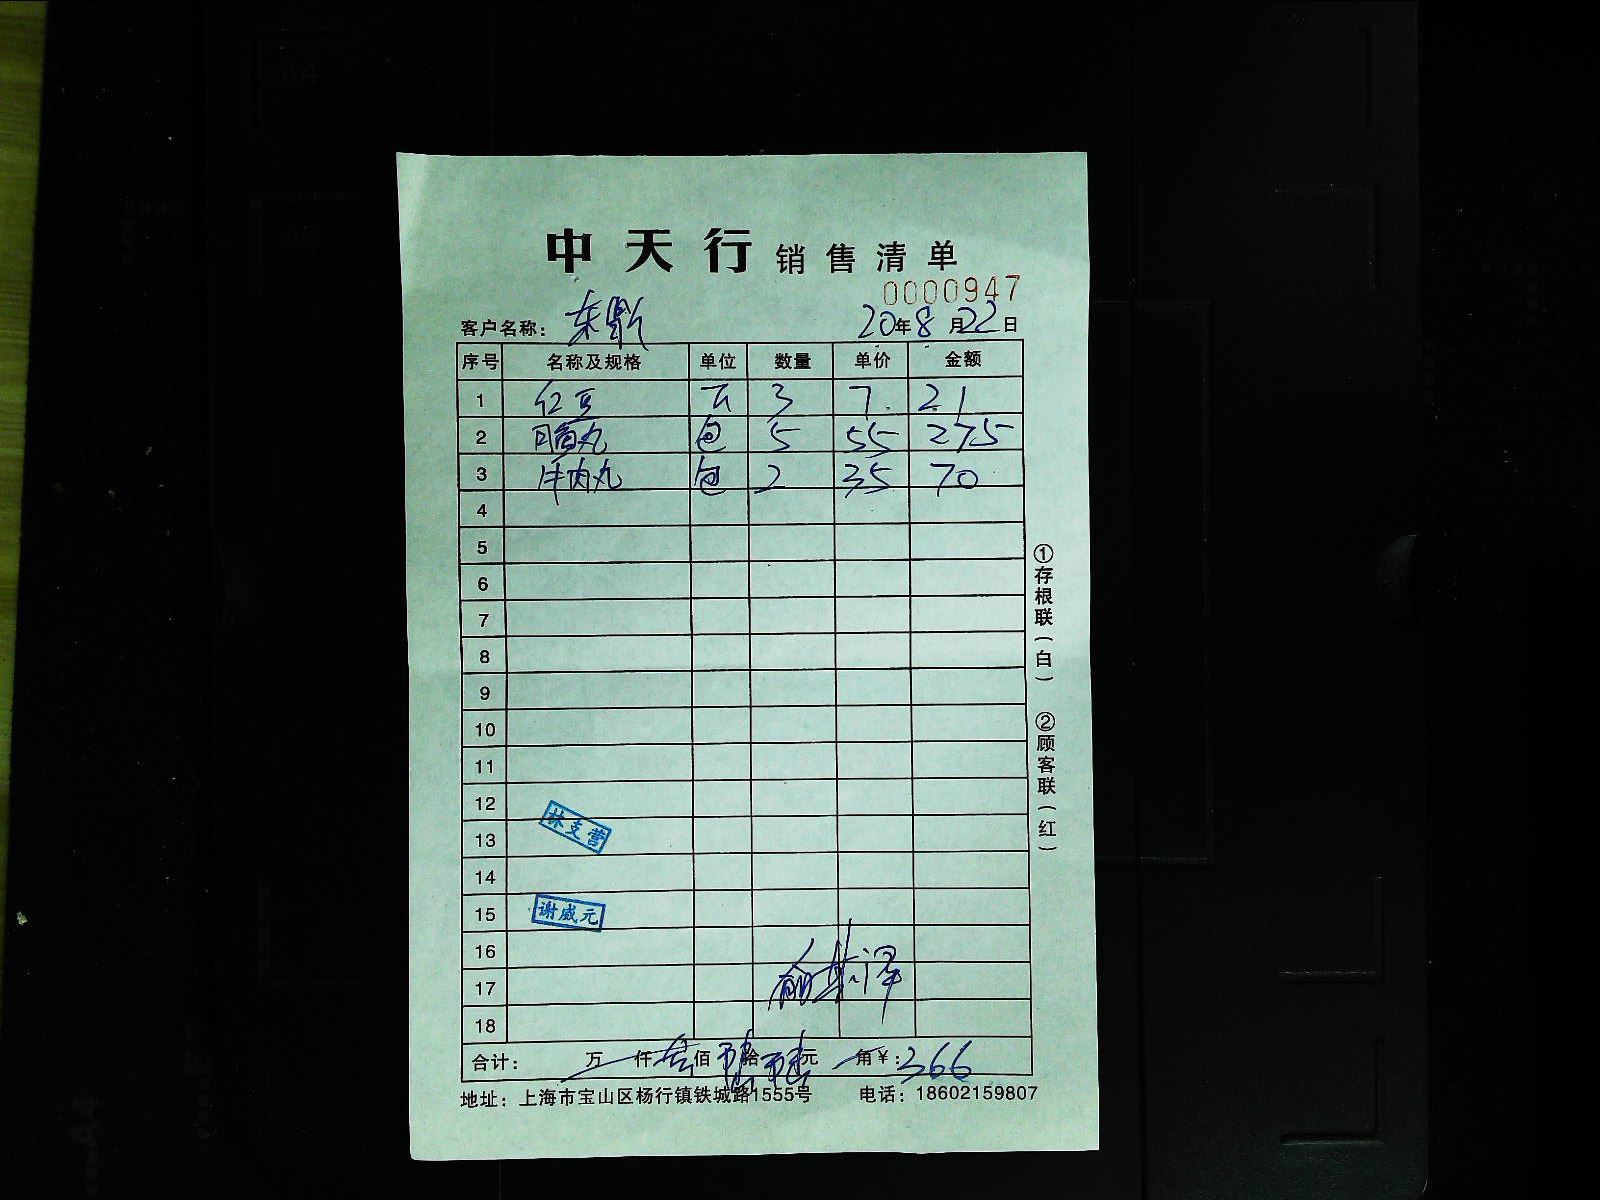 中天行 销售清单
0000947
客户名称： 20年8月22日
序号 名称及规格 单位 数量 单价 金额
1 红豆 3 7. 21
2 包 5 55 275
3 牛肉丸 包 2 35 70
4
5
6
7
8
9
10
11
12
林支营
13
14
15 谢威元
16
17
18
合计： 万 仟 叁 佰 陆 拾 陆 元 角 ¥：366
地址：上海市宝山区杨行镇铁城路1555号 电话：18602159807
①存根联（白） ②顾客联（红）